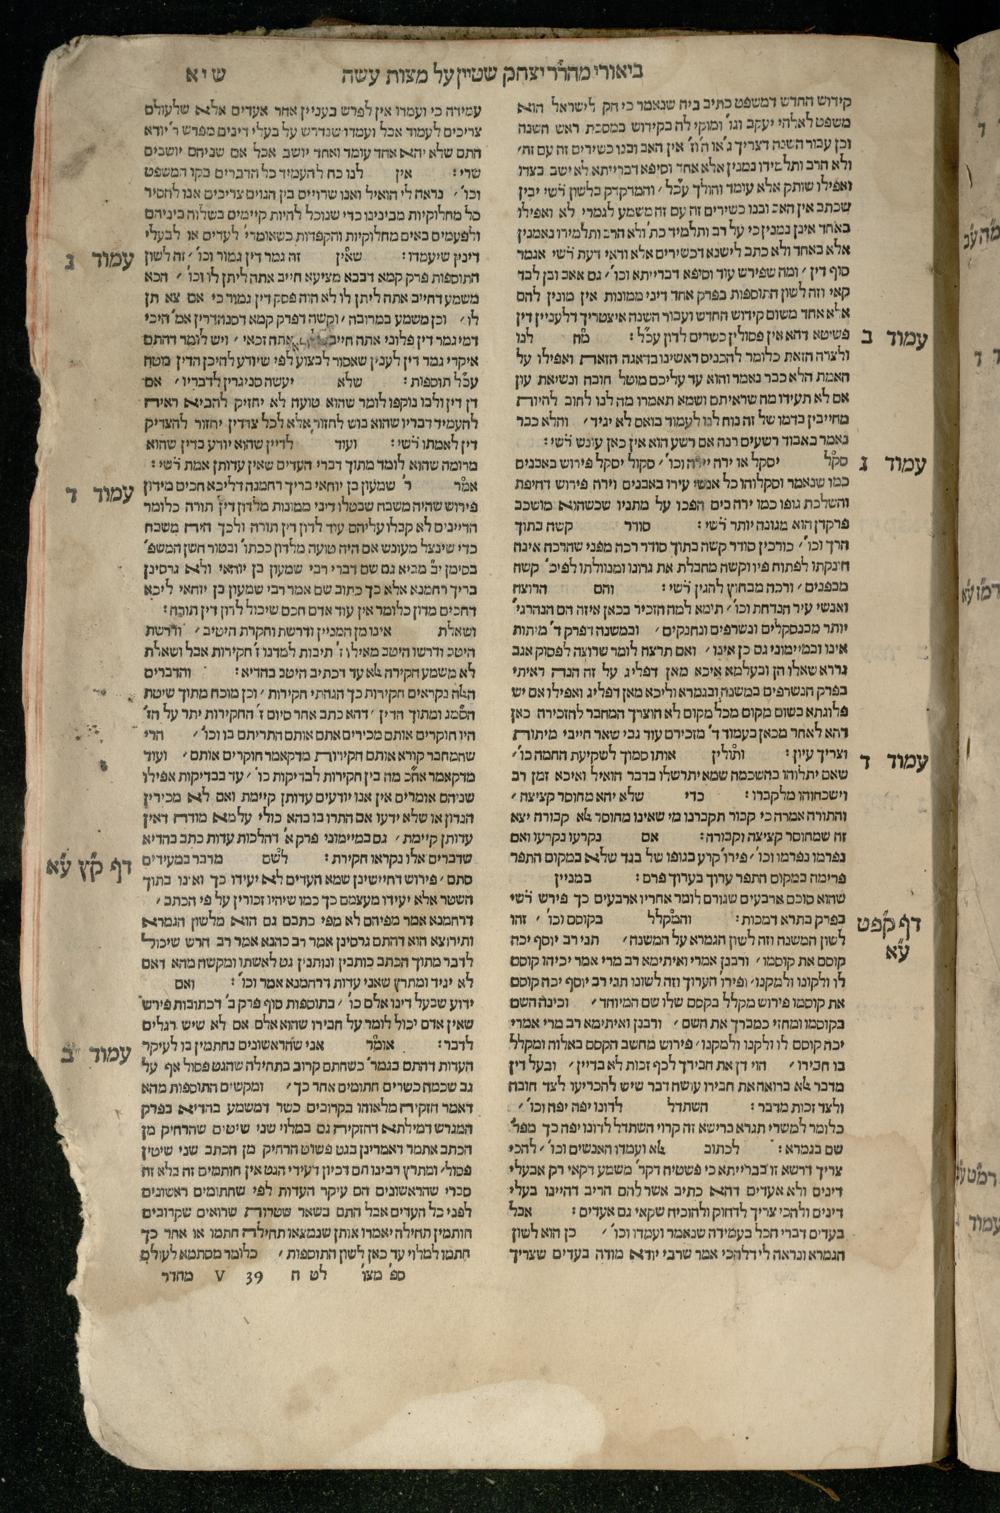 ביאורי מהר״ר יצחק שטיין על מצות עשה
שיא
קידוש החדש דמשפט כתיב ביה שנאמר כי חק לישראל הוא
משפט לאלהי יעקב וגו׳ ומוקי לה בקידוש במסכת ראש השנה
וכן עבור השנה דצריך ג׳ או ה׳ וז׳ אין האב ובנו כשירים זה עם זה׳
ולא הרב ותלמידו נמנין אלא אחד וסיפא דברייתא לא ישב בצדו
ואפילו שותק אלא עומד והולך עכ״ל׳ והמדקדק בלשון רש״י יבין
שכתב אין האב ובנו כשירים זה עם זה משמע לגמרי לא ואפילו
באחד אינן נמנין כי על רב ותלמיד כת׳ ולא הרב ותלמידו נאמנין
אלא באחד ולא כתב לישנא דכשירים אלא ודאי דעת רש״י אגמר
סוף דין׳ ומה שפירש עוד וסיפא דברייתא וכו׳ גם אאב ובן לבד
קאי וזה לשון התוספות בפרק אחד דיני ממונות אין מונין להם
אלא אחד משום קידוש החדש ועבור השנה איצטריך דלעניין דין
פשיטא דהא אין פסולין כשרים לדון עכ״ל : מה לנו
ולצרה הזאת כלומר להכניס ראשינו בדאגה הזאת ואפילו על
האמת הלא כבר נאמר והוא עד עליכם מוטל חובה ונשיאת עון
אם לא תעידו מה שראיתם ושמא תאמרו מה לנו לחוב להיות
מחייבין בדמו של זה נוח לנו לעמוד בואם לא יגיד׳ והלא כבר
נאמר באבוד רשעים רנה אם רשע הוא אין כאן עונש רש״י :
סקל יסקל או ירה יירה וכו׳ סקול יסקל פירוש באבנים
כמו שנאמר וסקלוהו כל אנשי עירו באבנים וירה פירוש דחיפת
והשלכת גופו כמו ירה בים הפכו על מתניו שכשהוא מושכב
פרקדן הוא מגונה יותר רש״י : סודר קשה בתוך
הרך וכו׳ כורכין סודר קשה בתוך סודר רכה מפני שהרכה אינה
חונקתו לפתוח פיו וקשה מחבלת את גרונו ומנוולתו לפיכ׳ קשה
מבפנים׳ ורכה מבחוץ להגין רש״י : והם הרוצח
ואנשי עיר הנדחת וכו׳ תימא למה הזכיר בכאן איזה הם הנהרגי׳
יותר מבנסקלים ונשרפים ונחנקים׳ ובמשנה דפרק ד׳ מיתות
אינו ובמיימוני גם כן אינו׳ ואם תרצה לומר שרוצה לפסוק אגב
גררא שאלו הן ובעלמא איכא מאן דפליג על זה הנה ראיתי
בפרק הנשרפים במשנה ובגמרא וליכא מאן דפליג ואפילו אם יש
פלוגתא בשום מקום מכל מקום לא הוצרך המחבר להזכירה כאן
דהא לאחר מכאן בעמוד ד׳ מזכירם עוד גבי שאר חייבי מיתות
וצריך עיון : ותולין אותו סמוך לשקיעת החמה כו׳
שאם יתלוהו בהשכמה שמא יתרשלו בדבר הואיל ואיכא זמן רב
וישכחוהו מלקברו : כדי שלא יהא מחוסר קציצה׳
והתורה אמרה כי קבור תקברנו מי שאינו מחוסר אלא קבורה יצא
זה שמחוסר קציצה וקבורה : אם נקרעו נקרעו ואם
נפרמו נפרמו וכו׳ פירו׳ קרע בגופו של בגד שלא במקום התפר
פרימה במקום התפר ערוך בערוך פרם : במניין
שהוא סוכם ארבעים שגורם לומר אחריו ארבעים כך פירש רש״י
בפרק בתרא דמכות : והמקלל בקוסם וכו׳ זהו
לשון המשנה וזה לשון הגמרא על המשנה׳ תני רב יוסף יכה
קוסם את קוסמו׳ ורבנן אמרי ואיתימא רב מרי אמר יכיהו קוסם
לו ולקונו ולמקנו׳ ופירו׳ הערוך וזה לשונו תני רב יוסף יכה קוסם
את קוסמו פירוש מקלל בקסם שלו שם המיוחד׳ וכינה השם
בקוסמו ומחזי כמברך את השם׳ ורבנן ואיתימא רב מרי אמרי
יכה קוסם לו ולקנו ולמקנו׳ פירוש מחשב הקסם באלוה ומקלל
בו חבירו׳ הוי דן את חבירך לכף זכות לא בדיין׳ ובעל דין
מדבר אלא ברואה את חבירו עושה דבר שיש להכריעו לצד חובה
ולצד זכות מדבר : השתדל לדונו יפה יפה וכו׳
כלומר למשרי תגרא ברישא זה קרוי השתדל לדונו יפה כך מפר׳
שם בגמרא : לכתוב לא ועמדו האנשים וכו׳ להכי
צריך דרשא זו בברייתא כי פשטיה דקר׳ משמע דקאי רק אבעלי
דינים ולא אעדים דהא כתיב אשר להם הריב דהיינו בעלי
דינים ולהכי צריך לדחוק ולהוכיח שקאי גם אעדים : אבל
בעדים דברי הכל בעמידה שנאמר ועמדו וכו׳ כן הוא לשון
הגמרא ונראה לי דלהכי אמר שרבי יודא מודה בעדים שצריך
עמוד ב
עמוד ג
עמוד ד
דף קפט
ע״א
עמידה כי ועמדו אין לפרש בעניין אחר אעדים אלא שלעולם
צריכים לעמוד אבל ועמדו שנדרש על בעלי דינים מפרש ר׳ יודא
התם שלא יהא אחד עומד ואחד יושב אבל אם שניהם יושבים
שרי : אין לנו כח להעמיד כל הדברים בקו המשפט
וכו׳ נראה לי הואיל ואנו שרויים בין הגוים צריכים אנו לחסיר
כל מחלוקיות מבינינו כדי שנוכל להיות קיימים בשלוה ביניהם
ולפעמים באים מחלוקיות והקפדות כשאומרי׳ לעדים או לבעלי
דינין שיעמדו : שאין זה גמר דין גמור וכו׳ זה לשון
התוספות פרק קמא דבבא מציעא חייב אתה ליתן לו וכו׳ הכא
משמע דחייב אתה ליתן לו לא הוה פסק דין גמור כי אם צא תן
לו׳ וכן משמע במרובה׳ וקשה דפרק קמא דסנהדרין אמ׳ היכי
דמי גמר דין פלוני אתה חייב אתה זכאי׳ ויש לומר דהתם
איקרי גמר דין לענין שאסור לבצוע לפי שיודע להיכן הדין מטה
עכ״ל תוספות : שלא יעשה סניגרין לדבריו׳ אם
דן דין ולבו נוקפו לומר שהוא טועה לא יחזיק להביא ראיה
להעמיד דבריו שהוא בוש לחזור אלא לכל צדדין יחזור להצדיק
דין לאמתו רש״י : ועוד לדיין שהוא יודע בדין שהוא
מרומה שהוא לומד מתוך דברי העדים שאין עדותן אמת רש״י :
אמר ר׳ שמעון בן יוחאי בריך רחמנה דליכא חכים מידון
פירוש שהיה משבח שבטלו דיני ממונות מלדון דין תורה כלומר
הדיינים לא קבלו עליהם עוד לדון דין תורה ולכך היה משבח
כדי שינצל מעונש אם היה טועה מלדון ככתו׳ ובטור חשן המשפ׳
בסימן י״ב מביא גם שם דברי רבי שמעון בן יוחאי ולא גרסינן
בריך רחמנא אלא כך כתוב שם אמר רבי שמעון בן יוחאי ליכא
דחכים מדון כלומר אין עוד אדם חכם שיכול לדון דין תורה :
ושאלת אינו מן המניין ודרשת וחקרת היטיב׳ ודרשת
היטב ודרשו היטב מאילו ז׳ תיבות למדנו ז׳ חקירות אבל ושאלת
לא משמע חקירה אלא עד דכתיב היטב בהדיא : והדברים
האלה נקראים חקירות כך הגהתי חקירות׳ וכן מוכח מתוך שיטת
הסמג ומתוך הדין׳ דהא כתב אחר סיום ז׳ החקירות יתר על הז׳
היו חוקרים אותם מכירים אתם אותם התריתם בו וכו׳ הרי
שהמחבר קורא אותם חקירות מדקאמר חוקרים אותם׳ ועוד
מדקאמר אח״כ מה בין חקירות לבדיקות כו׳ עד בבדיקות אפילו
שניהם אומרים אין אנו יודעים עדותן קיימת ואם לא מכירין
הנדון או שלא ידעו אם התרו בו בהא כולי עלמא מודה דאין
עדותן קיימת׳ גם במיימוני פרק א׳ דהלכות עדות כתב בהדיא
שדברים אלו נקראו חקירת : לשם מדבר במעידים
סתם׳ פירוש דחיישינן שמא העדים לא יעידו כך ואינו בתוך
השטר אלא יעידו מעצמם כך כמו שיהיו זכורין על פי הכתב׳
דרחמנא אמר מפיהם לא מפי כתבם גם הוא מלשון הגמרא
ותירוצא הוא דהתם גרסינן אמר רב כהנא אמר רב הרש שיכול
לדבר מתוך הכתב כותבין ונותנין גט לאשתו ומקשה מהא דאם
לא יגיד ומתרץ שאני עדות דרחמנא אמר וכו׳ : ואם
ידוע שבעל דינו אלם כו׳ בתוספות סוף פרק ב׳ דכתובות פירש
שאין אדם יכול לומר על חבירו שהוא אלם אם לא שיש רגלים
לדבר : אומר אני שהראשונים נחתמין בו לעיקר
העדות דהתם בגמר׳ כשחתם קרוב בתחילה שהגט פסול אף על
גב שכמה כשרים חתומים אחר כך׳ ומקשים התוספות מהא
דאמר חזקיה מלאוהו בקרובים כשר דמשמע בהדיא בפרק
המגרש דמילתא דהזקיה גם במלוי שני שיטים שהרחיק מן
הכתב אתמר דאמרינן בגט פשוט הרחיק מן הכתב שני שיטין
פסול׳ ומתרץ רבינו תם דכיון דעידי הגט אין חותמים זה בלא זה
סברי שהראשונים הם עיקר העדות לפי שחתומים ראשונים
לפני כל העדים אבל התם בשאר שטרות שרואים שקרובים
חותמין תחילה יאמרו אותן שנמצאו תחילה חתמו או אחר כך
חתמו למלוי עד כאן לשון התוספות׳ כלומר מסתמא לעולם
עמוד ג
עמוד ד
דף קץ ע״א
עמוד ב
ספ׳ מצו׳ לט ח 39 V מהדר